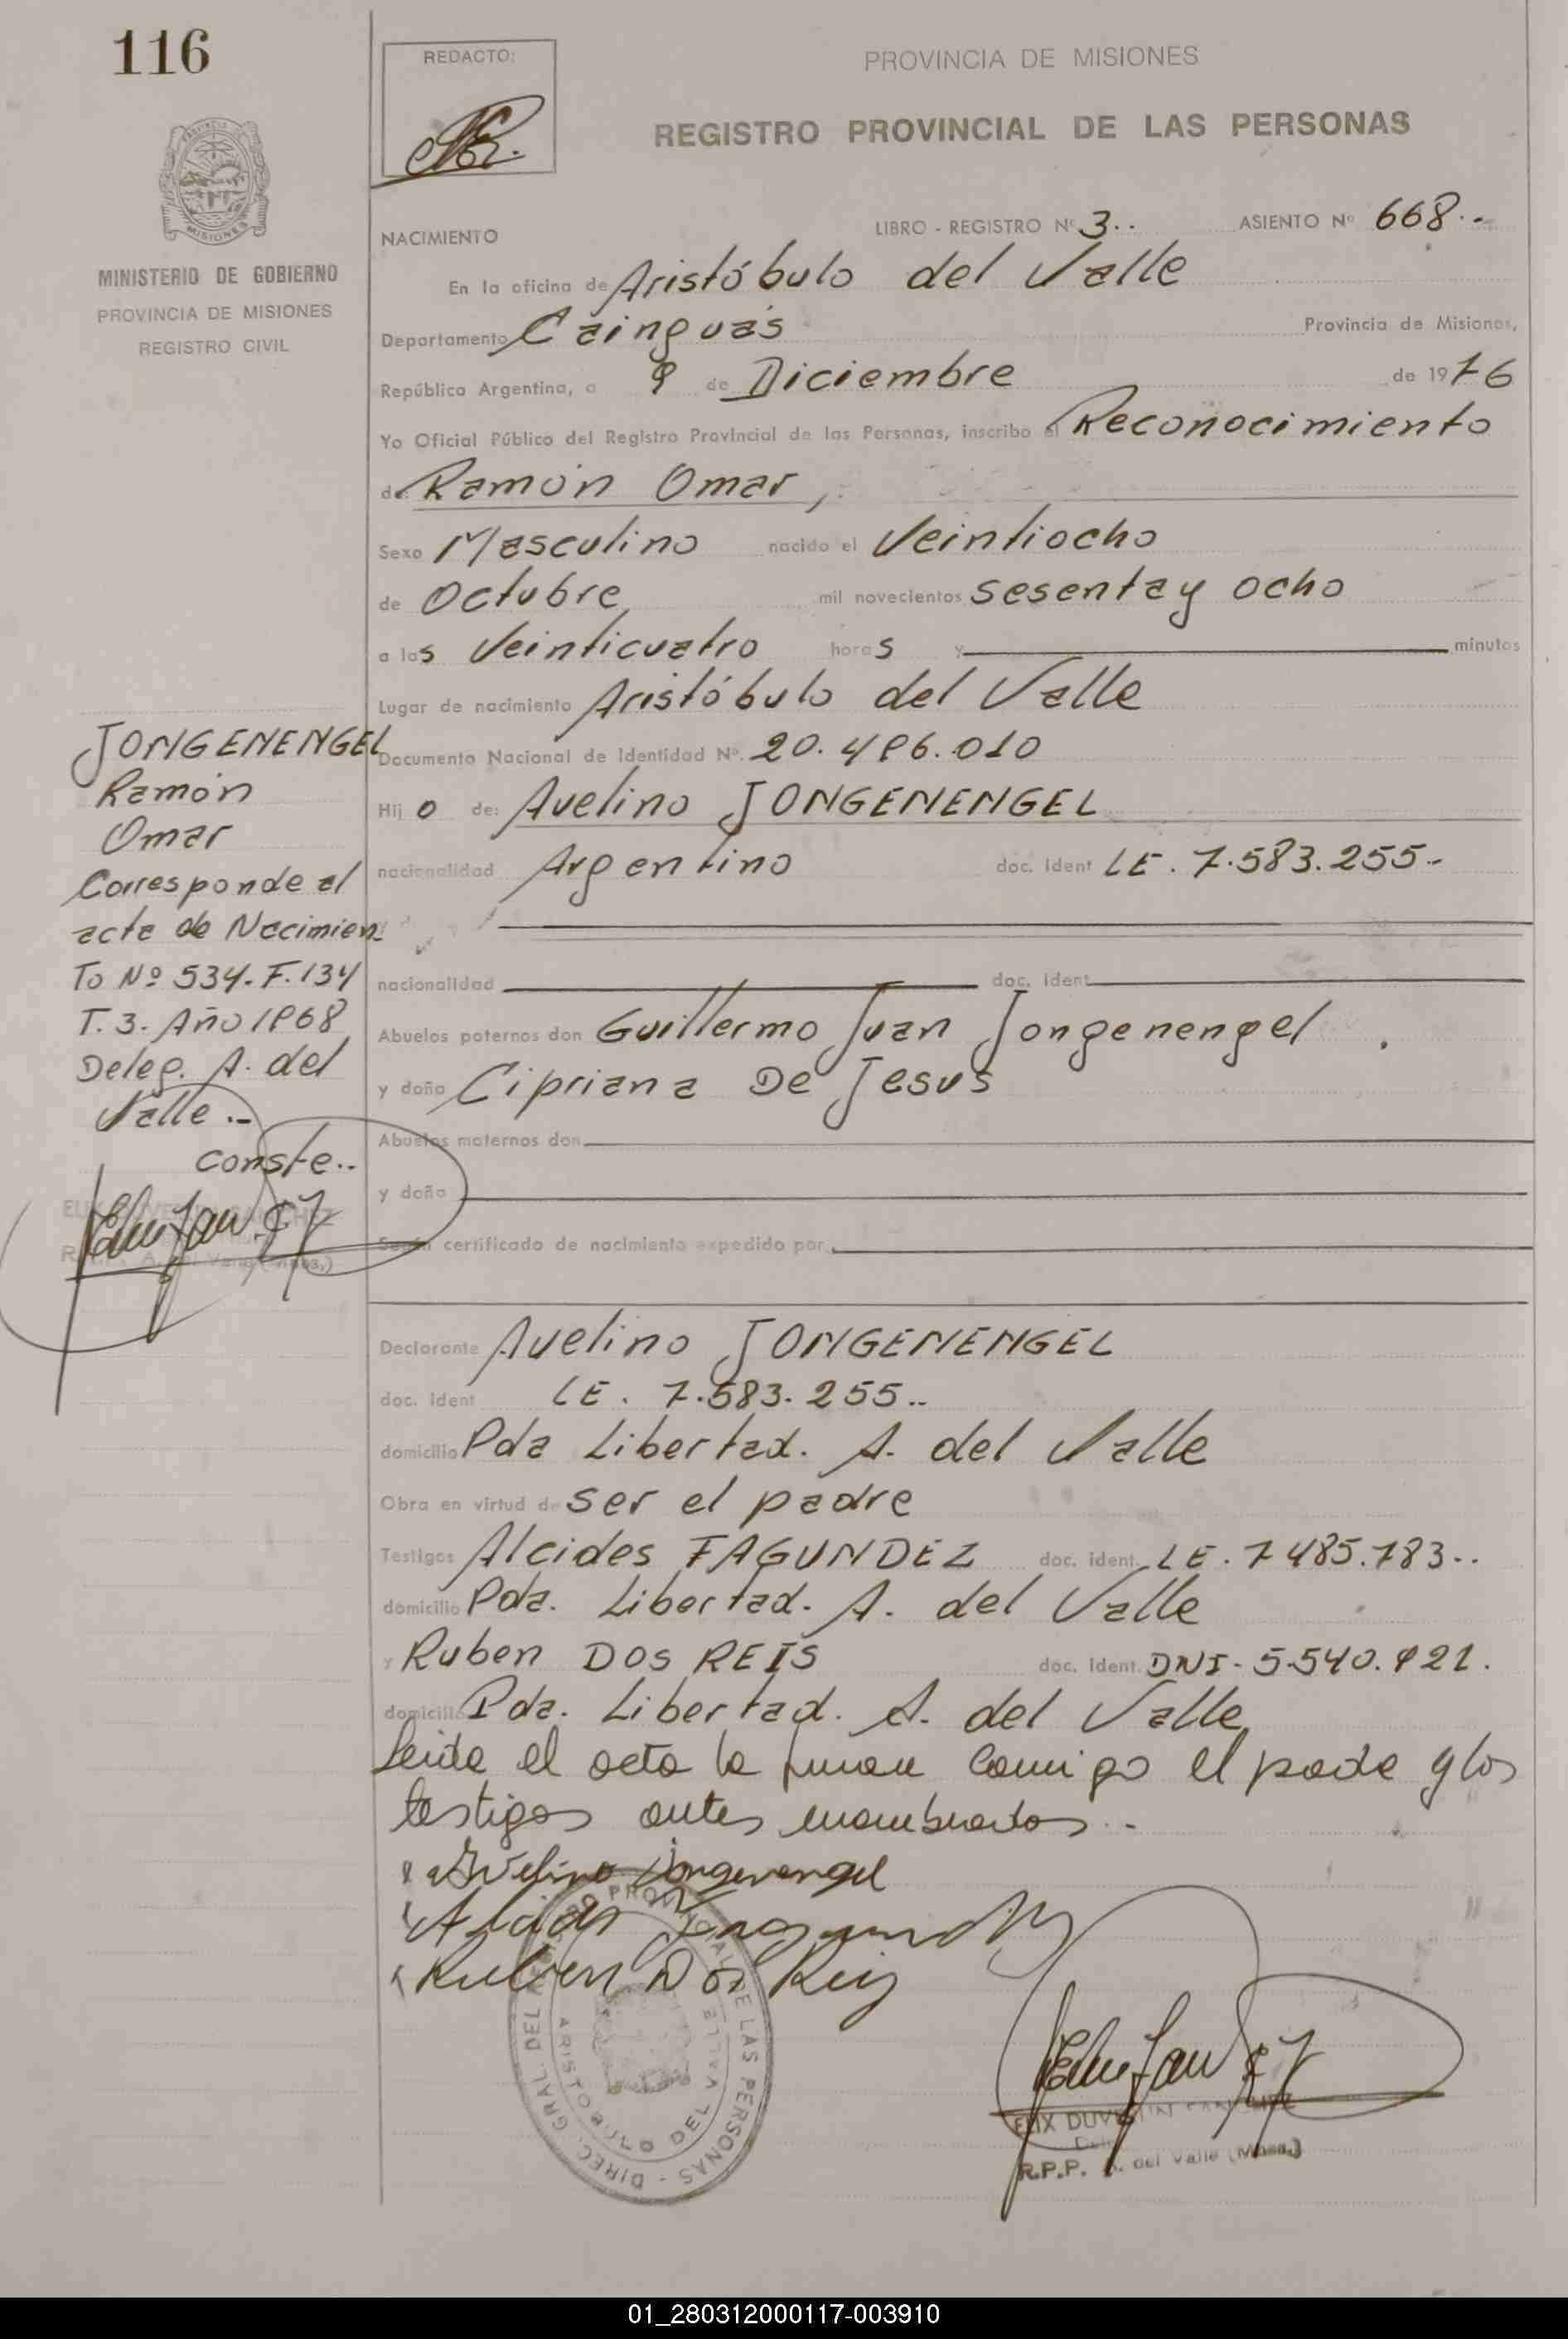 116
MINISTERIO DE GOBIERNO
PROVINCIA DE MISIONES
REGISTRO CIVIL
JONGENENGEL
Ramón
Omar
Corresponde al
acta de Nacimien
To Nº 534. F. 134
T. 3. Año 1968
Deleg. A. del
Valle.-
conste..
REDACTO:
PROVINCIA DE MISIONES
REGISTRO PROVINCIAL DE LAS PERSONAS
NACIMIENTO LIBRO - REGISTRO Nº 3.. ASIENTO Nº 668.-
En la oficina de Aristóbulo del Valle
Departamento Cainguás Provincia de Misiones,
República Argentina, a 9 de Diciembre de 1976
Yo Oficial Público del Registro Provincial de las Personas, inscribo el Reconocimiento
de Ramón Omar,
Sexo Masculino nacido el Veintiocho
de Octubre mil novecientos sesenta y ocho
a las Veinticuatro horas y minutos
Lugar de nacimiento Aristóbulo del Valle
Documento Nacional de Identidad Nº. 20.496.010
Hijo de: Avelino JONGENENGEL
nacionalidad Argentino doc. ident LE. 7.583.255-
nacionalidad doc. ident
Abuelos paternos don Guillermo Juan Jongenengel
y doña Cipriana De Jesus
Abuelos maternos don
y doña
Según certificado de nacimiento expedido por
Declarante Avelino JONGENENGEL
doc. ident LE. 7.583.255..
domicilio Pda Libertad. A. del Valle
Obra en virtud de ser el padre
Testigos Alcides FAGUNDEZ doc. ident. LE. 7485.783..
domicilio Pda. Libertad. A. del Valle
y Ruben DOS REIS doc. ident. DNI- 5.540.921.
domicilio Pda. Libertad. A. del Valle
Leida el acta la firman conmigo el padre y los
testigos antes nombrados.-
Avelino Jongenengel
Ruben Dos Reis
DIREC. GRAL. DEL REGISTRO PROVINCIAL DE LAS PERSONAS -
ARISTOBULO DEL VALLE
R.P.P. A. del Valle (Mnes.)
01_280312000117-003910